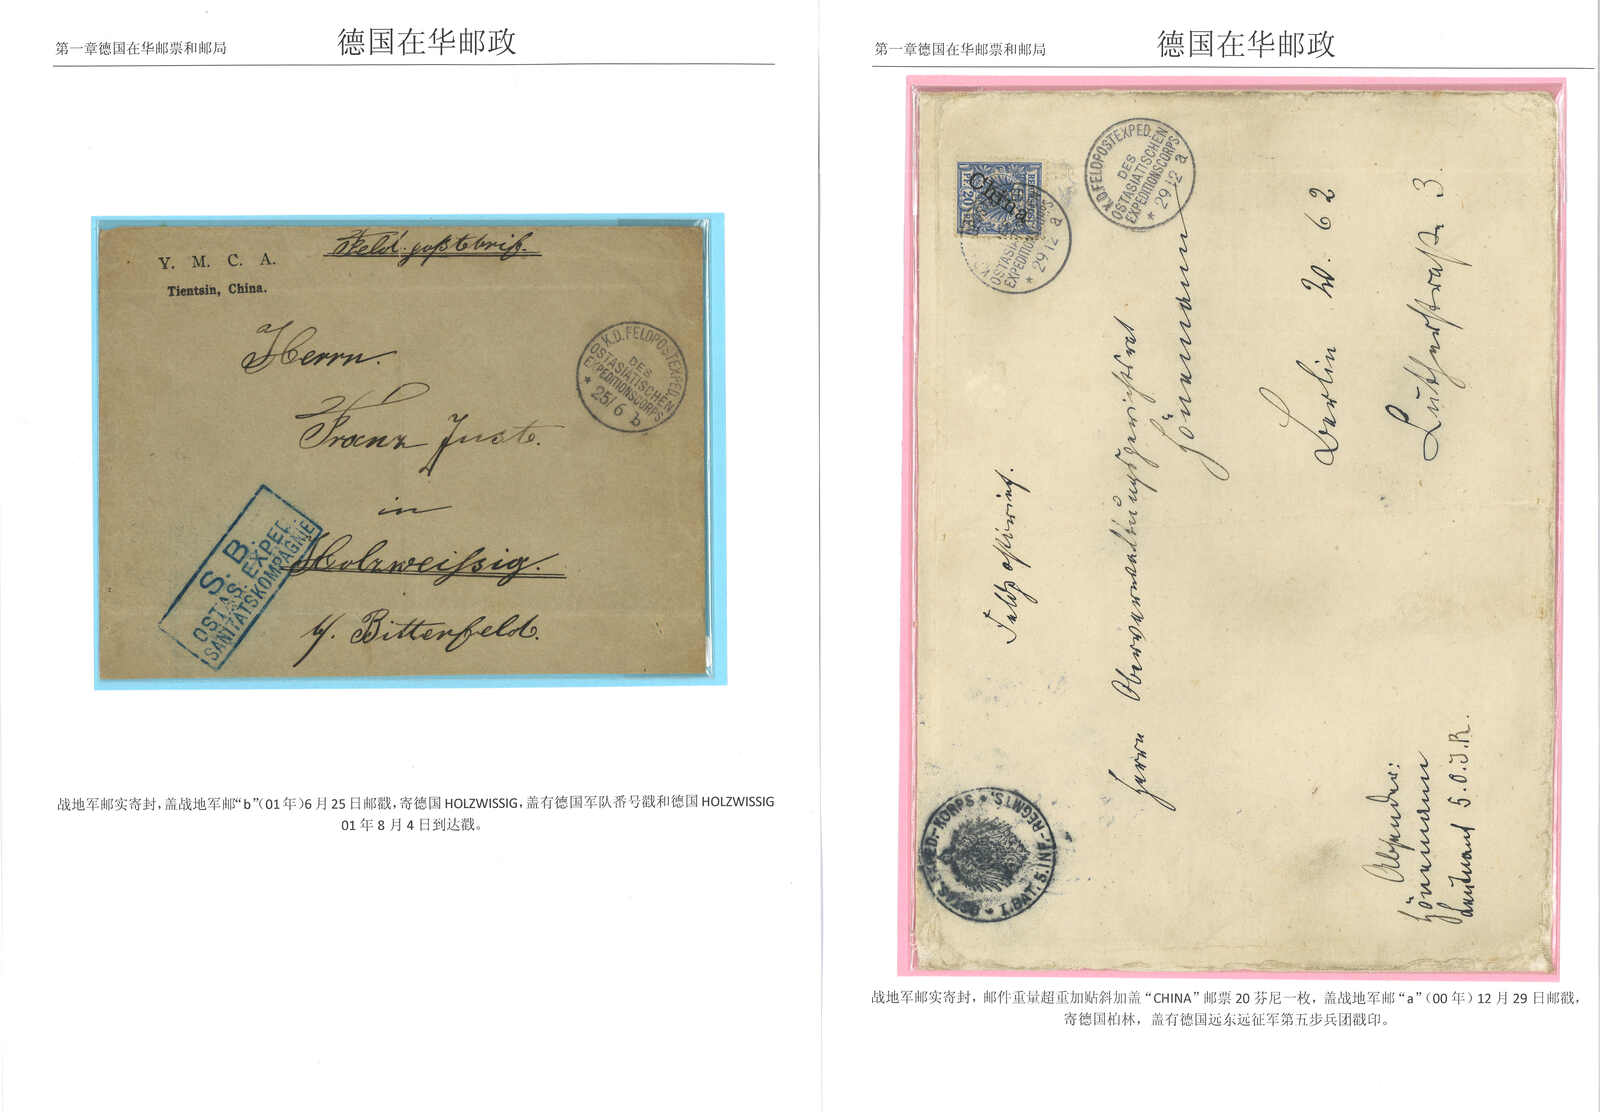 第一章德国在华邮票和邮局
德国在华邮政
Y. M. C. A.
Tientsin, China.
Feldpostbrief.
Herrn
Franz Just.
in
Holzweissig.
b/. Bitterfeld.
K.D. FELDPOSTEXPED.
DES
OSTASIATISCHEN
EXPEDITIONSCORPS
* 25/6 b
S. B.
OSTAS. EXPED.
SANITÄTSKOMPAGNIE
战地军邮实寄封，盖战地军邮“b”（01 年）6 月 25 日邮戳，寄德国 HOLZWISSIG，盖有德国军队番号戳和德国 HOLZWISSIG
01 年 8 月 4 日到达戳。
第一章德国在华邮票和邮局
德国在华邮政
China
20
OSTASIATISCHEN
EXPEDITIONSCORPS
* 29 12 a
K.D. FELDPOSTEXPED.
DES
OSTASIATISCHEN
EXPEDITIONSCORPS
* 29 12 a
Feldpostbrief.
Herrn Oberverwaltungsgerichtsrat
Hönemann
Berlin W. 62
Lutherstraße 3.
Absender:
Hönemann
Leutnant 5. O.I.R.
OSTAS. EXPED.-KORPS
* I. BAT. 5. INF.-REGMTS. *
战地军邮实寄封，邮件重量超重加贴斜加盖“CHINA”邮票 20 芬尼一枚，盖战地军邮“a”（00 年）12 月 29 日邮戳，
寄德国柏林，盖有德国远东远征军第五步兵团戳印。